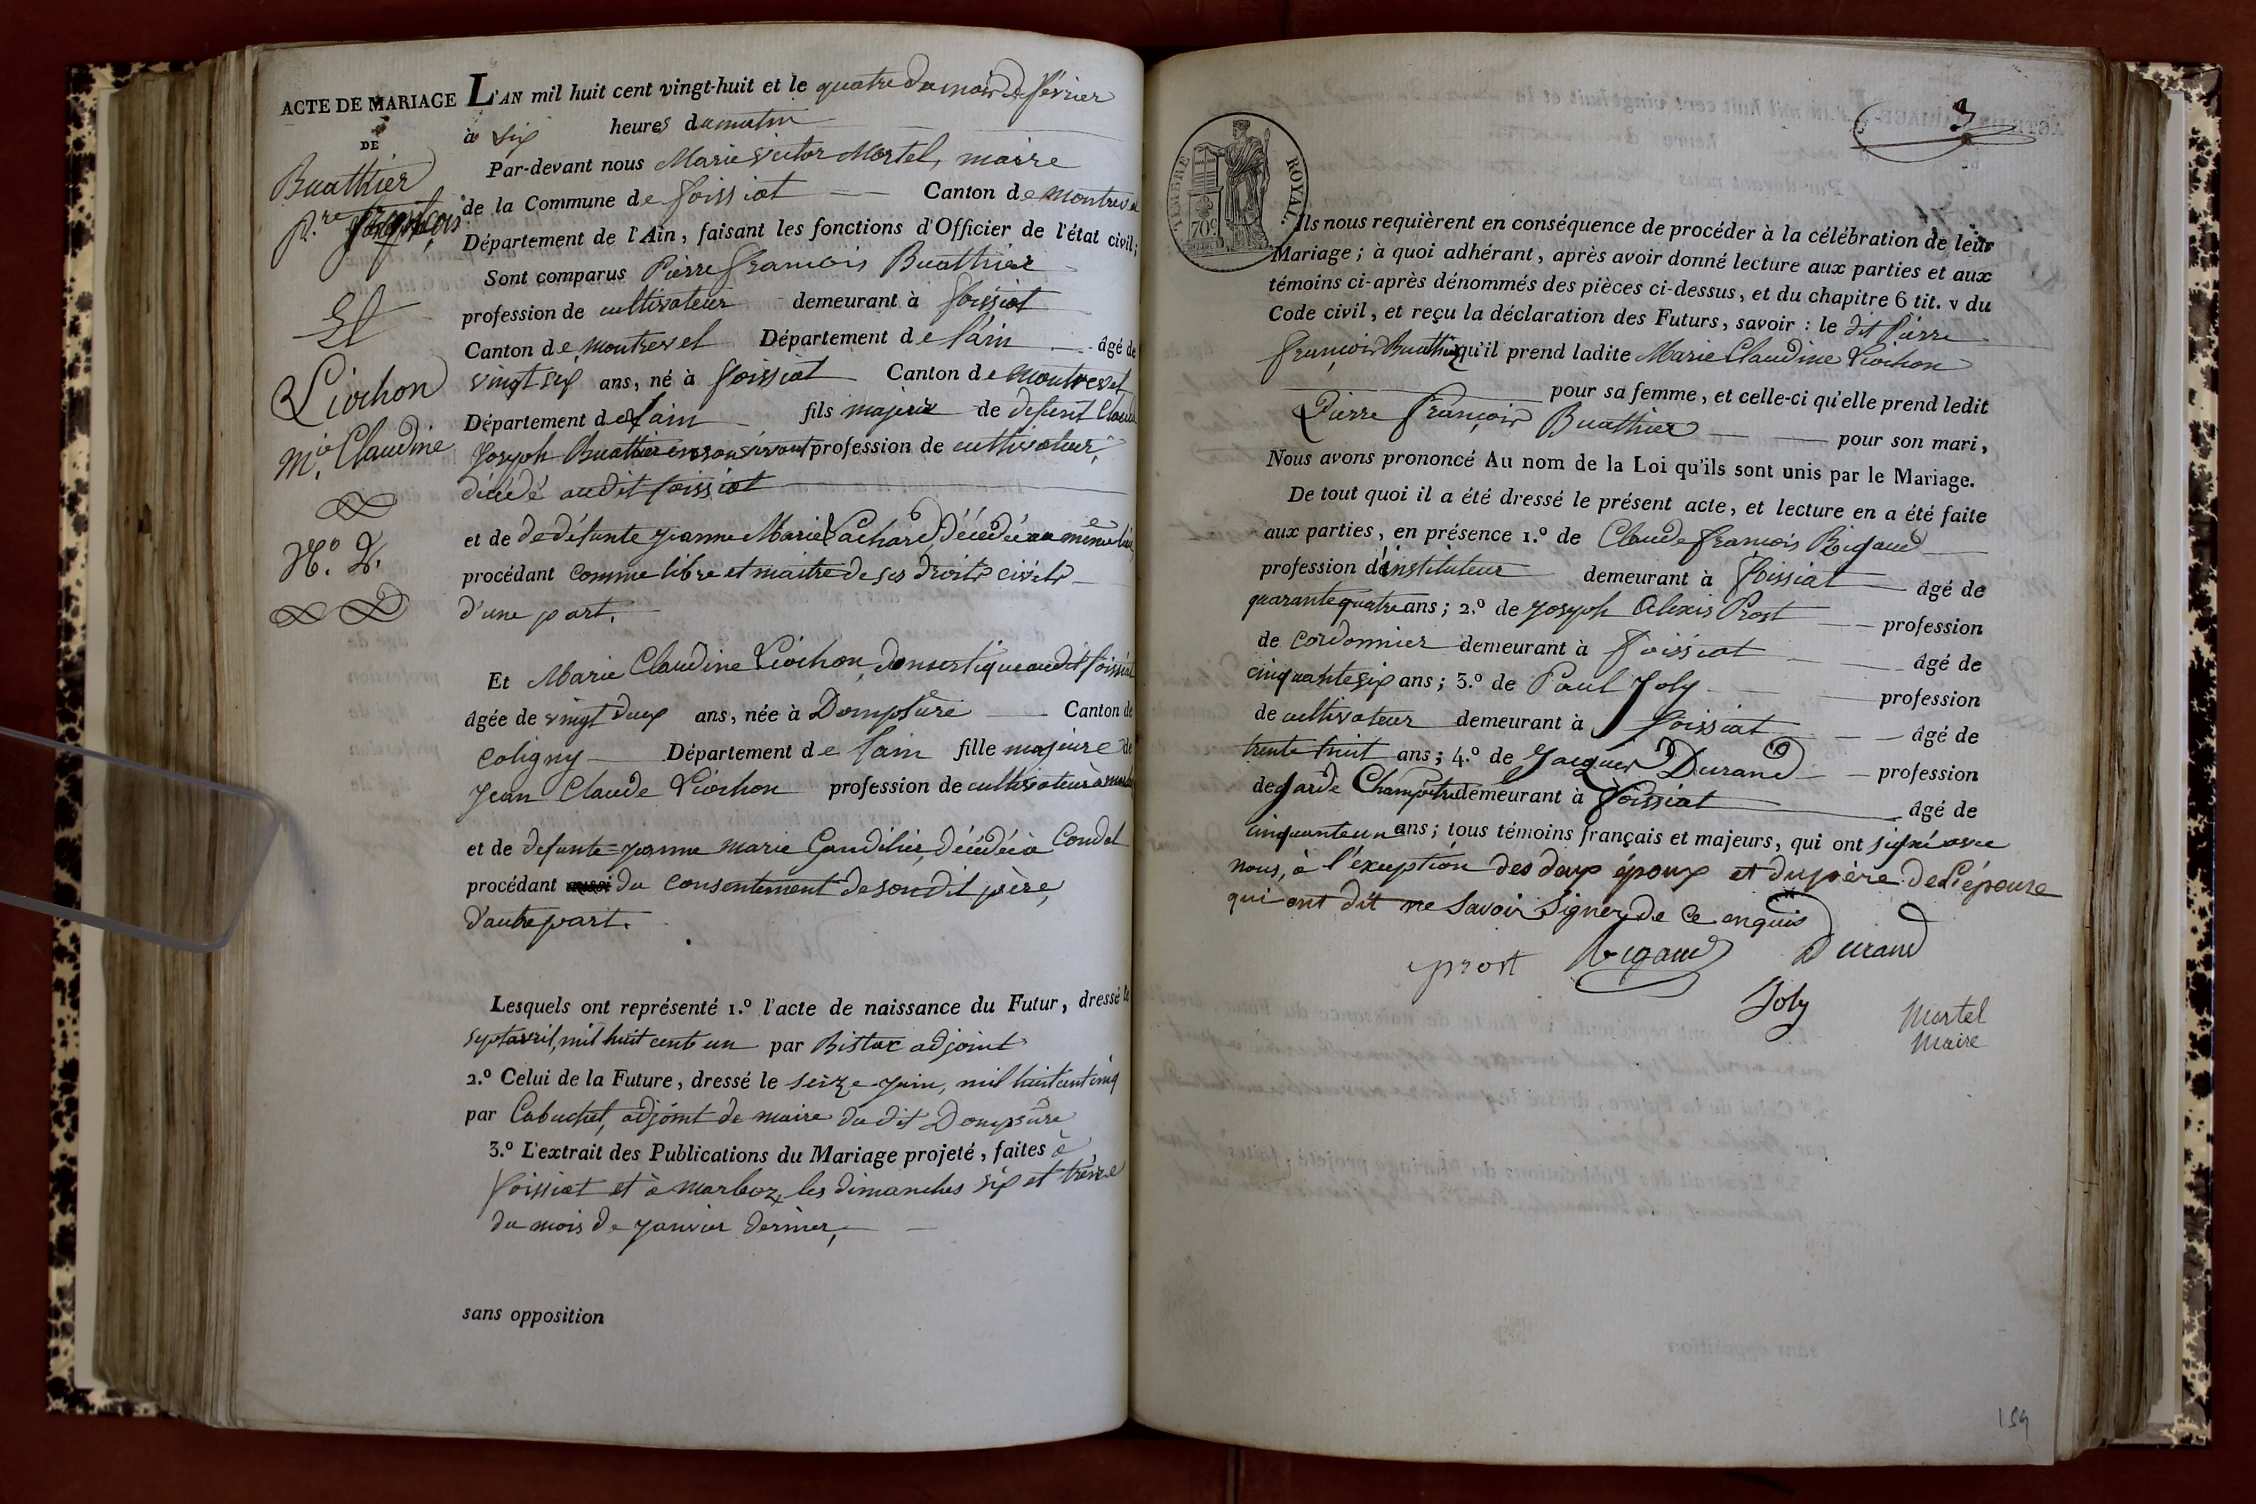 ACTE DE MARIAGE
DE
Buathier
P.re françois
Et
Liochon
M.ie Claudine
N.o 2.
L'AN mil huit cent vingt-huit et le quatre du mois de février
à six heures du matin
Par-devant nous Marie victor Mortel, maire
de la Commune de foissiat Canton de montrevel
Département de l'Ain, faisant les fonctions d'Officier de l'état civil;
Sont comparus Pierre françois Buathier
profession de cultivateur demeurant à foissiat
Canton de montrevel Département de l'ain âgé de
vingt six ans, né à foissiat Canton de montrevel
Département de l'ain fils majeur de defunt Claude
Joseph Buathier en son vivant profession de cultivateur,
décédé audit foissiat
et de defunte jeanne Marie Pachard, décédée au même lieu,
procédant comme libre et maitre de ses droits civils
d'une part.
Et Marie Claudine Liochon, domestique audit foissiat
âgée de vingt deux ans, née à Dompsure Canton de
Coligny Département de l'ain fille majeure de
Jean Claude Liochon profession de cultivateur à
et de defunte jeanne marie Gaudilier, décédée à Condal
procédant du consentement de son dit père,
d'autre part.
Lesquels ont représenté 1.o l'acte de naissance du Futur, dressé le
sept avril, mil huit cent un par Bistac adjoint
2.o Celui de la Future, dressé le seize juin, mil huit cent cinq
par Cabuchet, adjoint de maire du dit Dompsure
3.o L'extrait des Publications du Mariage projeté, faites à
foissiat et à marboz, les dimanches six et treize
du mois de janvier dernier,
sans opposition
3
TIMBRE ROYAL
70c
Ils nous requièrent en conséquence de procéder à la célébration de leur
Mariage; à quoi adhérant, après avoir donné lecture aux parties et aux
témoins ci-après dénommés des pièces ci-dessus, et du chapitre 6 tit. v du
Code civil, et reçu la déclaration des Futurs, savoir : le dit pierre
françois Buathier qu'il prend ladite Marie Claudine Liochon
pour sa femme, et celle-ci qu'elle prend ledit
Pierre françois Buathier pour son mari,
Nous avons prononcé Au nom de la Loi qu'ils sont unis par le Mariage.
De tout quoi il a été dressé le présent acte, et lecture en a été faite
aux parties, en présence 1.o de Claude françois Rigaud
profession d'instituteur demeurant à foissiat âgé de
quarante quatre ans; 2.o de joseph Alexis Prost profession
de cordonnier demeurant à foissiat âgé de
cinquante six ans; 3.o de Paul Joly profession
de cultivateur demeurant à foissiat âgé de
trente huit ans; 4.o de Jacques Durand profession
de garde Champetre demeurant à foissiat âgé de
cinquante un ans; tous témoins français et majeurs, qui ont signé avec
nous, à l'exception des deux époux et du père de l'épouse
qui ont dit ne savoir signer de ce enquis
prost Rigaud Durand
Joly Mortel
Maire
159